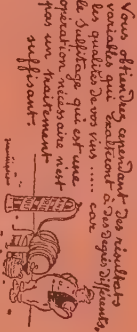 Vous obtiendrez cependant des résultats
variables qui exalteront à des degrés différents
les qualités de vos vins ..... car
le Sulfitage qui est une
opération nécessaire n'est
pas un traitement
suffisant.